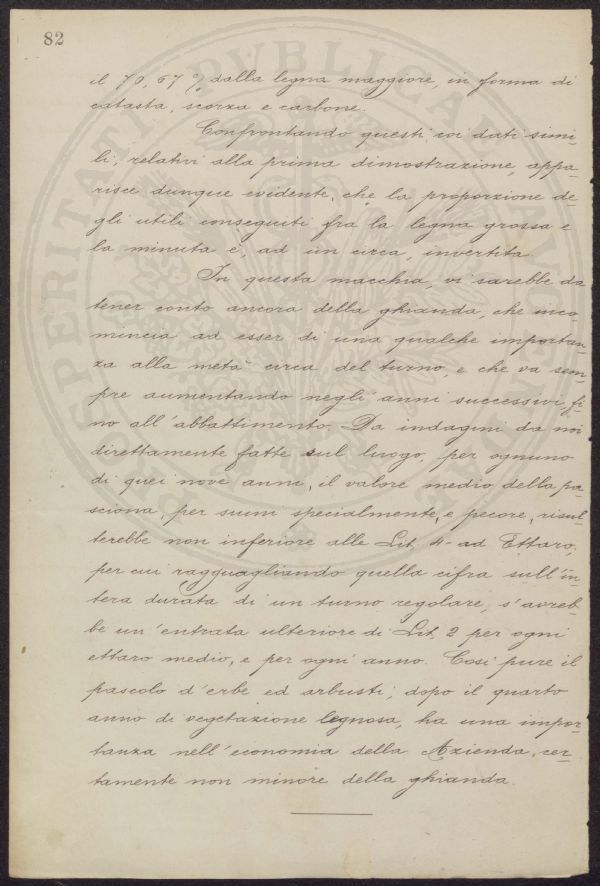 82
il 70,67 % dalla legna maggiore, in forma di
catasta, scorza e carbone.
Confrontando questi coi dati simi-
li, relativi alla prima dimostrazione, appa-
risce dunque evidente, che la proporzione de-
gli utili conseguiti fra la legna grossa e
la minuta è, ad un circa, invertita
In questa macchia, vi sarebbe da
tener conto ancora della ghianda, che inco-
mincia ad esser di una qualche importan-
za alla metà circa del turno, e che va sem-
pre aumentando negli anni successivi fi-
no all'abbattimento. Da indagini da noi
direttamente fatte sul luogo, per ognuno
di quei nove anni, il valore medio della pa-
sciona, per suini specialmente, e pecore, risul-
terebbe non inferiore alle Lit. 4- ad Ettaro,
per cui ragguagliando quella cifra sull'in-
tera durata di un turno regolare, s'avreb-
be un'entrata ulteriore di Lit. 2 per ogni
ettaro medio, e per ogni anno. Così pure il
pascolo d'erbe ed arbusti, dopo il quarto
anno di vegetazione legnosa, ha una impor-
tanza nell'economia della Azienda, cer-
tamente non minore della ghianda.